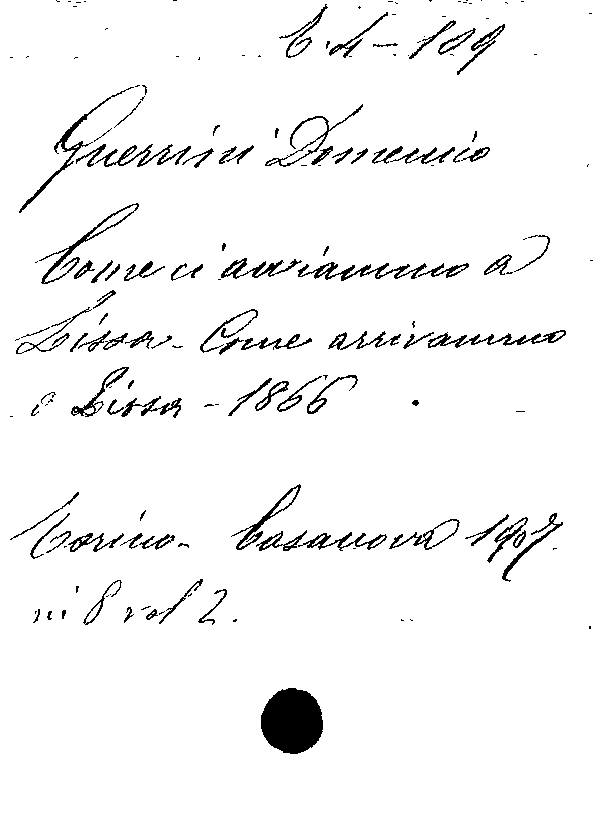 C.4-189
Guerrini Domenico
Come ci avviammo a
Lissa - Come arrivammo
a Lissa - 1866
Torino - Casanova 1907
in 8 vol 2.